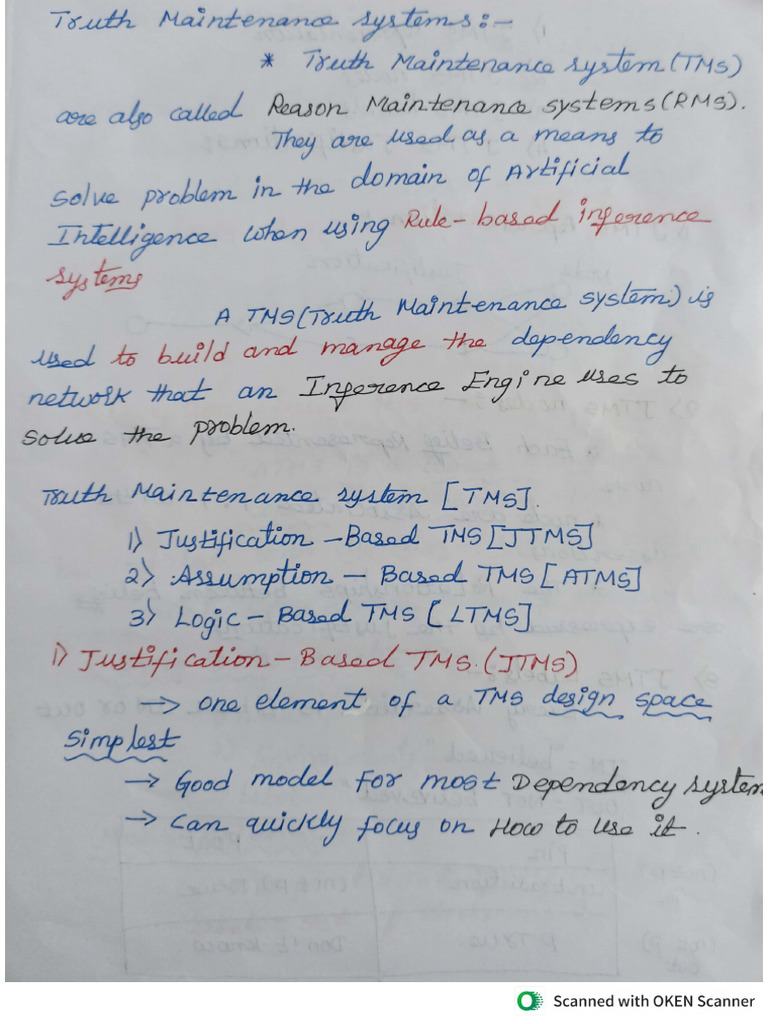 Truth Maintenance systems:-
* Truth Maintenance system(TMS)
are also called Reason Maintenance systems(RMS).
They are used as a means to
solve problem in the domain of Artificial
Intelligence when using Rule-based inference
systems
A TMS(Truth Maintenance system) is
used to build and manage the dependency
network that an Inference Engine uses to
solve the problem.
Truth Maintenance system [TMS].
1) Justification -Based TMS[JTMS]
2) Assumption - Based TMS[ATMS]
3) Logic - Based TMS [LTMS]
1) Justification - Based TMS.(JTMS)
→ one element of a TMS design space
simplest
→ Good model for most Dependency system
→ can quickly focus on How to use it.
Scanned with OKEN Scanner